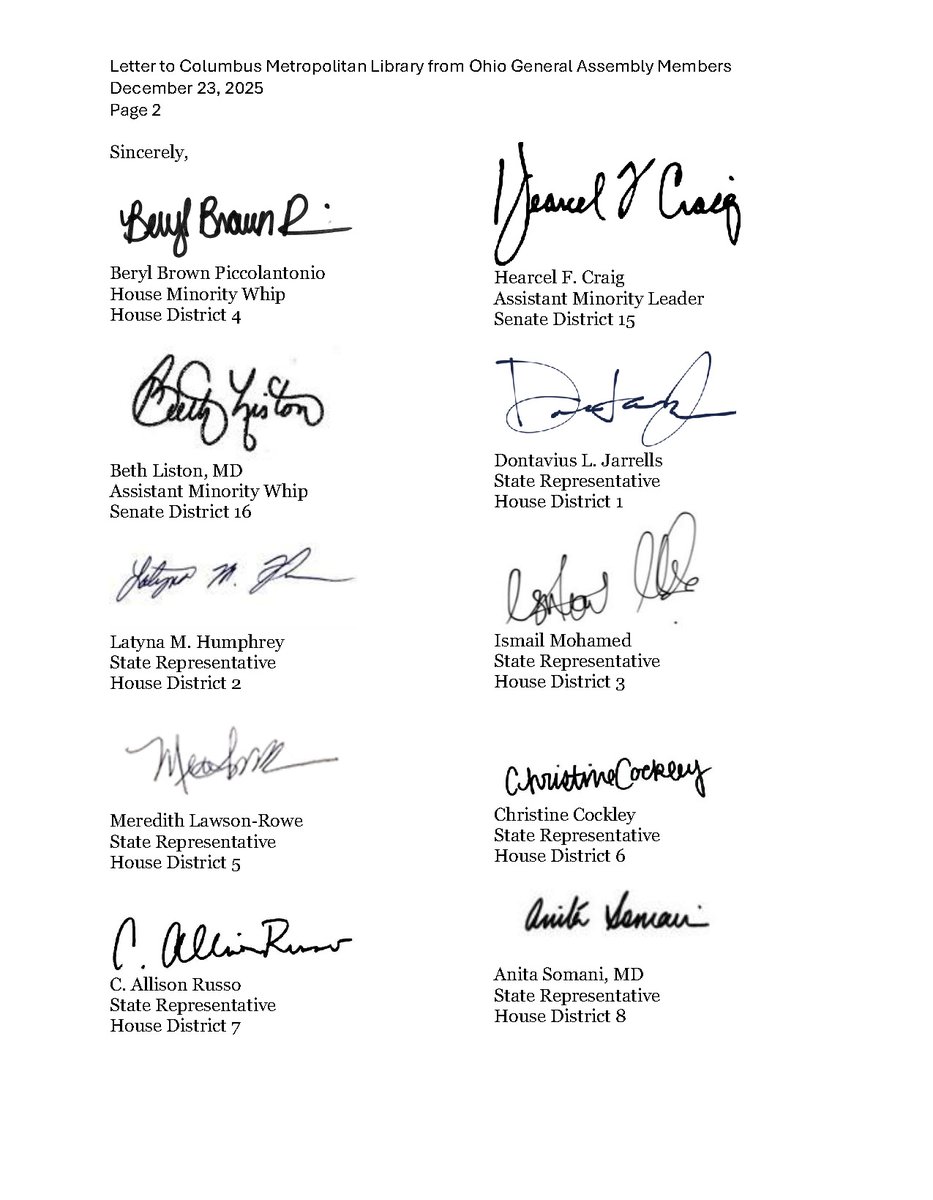 Letter to Columbus Metropolitan Library from Ohio General Assembly Members
December 23, 2025
Page 2
Sincerely,
Beryl Brown
Beryl Brown Piccolantonio
House Minority Whip
House District 4
Hearcel F Craig
Hearcel F. Craig
Assistant Minority Leader
Senate District 15
Beth Liston
Beth Liston, MD
Assistant Minority Whip
Senate District 16
Dontavius L. Jarrells
State Representative
House District 1
Latyna M.
Latyna M. Humphrey
State Representative
House District 2
Ismail Mohamed
State Representative
House District 3
Meredith Lawson-Rowe
State Representative
House District 5
Christine Cockley
Christine Cockley
State Representative
House District 6
C. Allison Russo
C. Allison Russo
State Representative
House District 7
Anita Somani
Anita Somani, MD
State Representative
House District 8